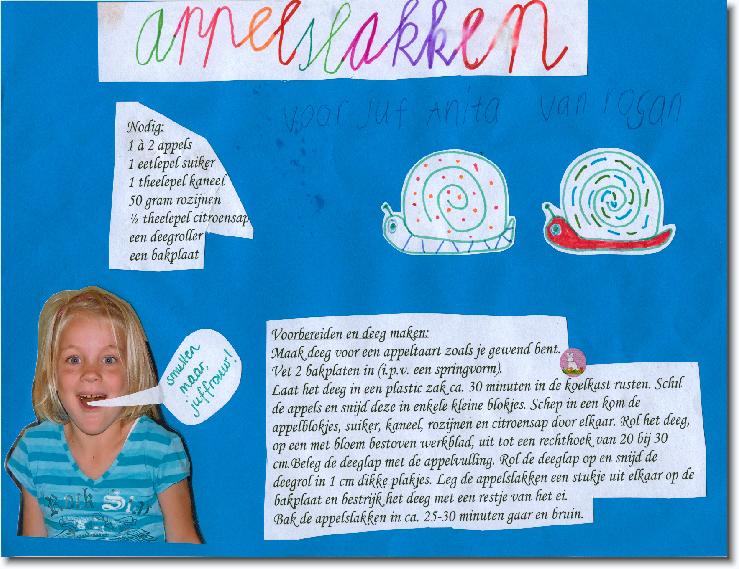 appelslakken
voor juf Anita van rosan
Nodig:
1 à 2 appels
1 eetlepel suiker
1 theelepel kaneel
50 gram rozijnen
½ theelepel citroensap
een deegroller
een bakplaat
smullen
maar,
juffrouw!
Voorbereiden en deeg maken:
Maak deeg voor een appeltaart zoals je gewend bent.
Vet 2 bakplaten in (i.p.v. een springvorm).
Laat het deeg in een plastic zak ca. 30 minuten in de koelkast rusten. Schil
de appels en snijd deze in enkele kleine blokjes. Schep in een kom de
appelblokjes, suiker, kaneel, rozijnen en citroensap door elkaar. Rol het deeg,
op een met bloem bestoven werkblad, uit tot een rechthoek van 20 bij 30
cm.Beleg de deeglap met de appelvulling. Rol de deeglap op en snijd de
deegrol in 1 cm dikke plakjes. Leg de appelslakken een stukje uit elkaar op de
bakplaat en bestrijk het deeg met een restje van het ei.
Bak de appelslakken in ca. 25-30 minuten gaar en bruin.